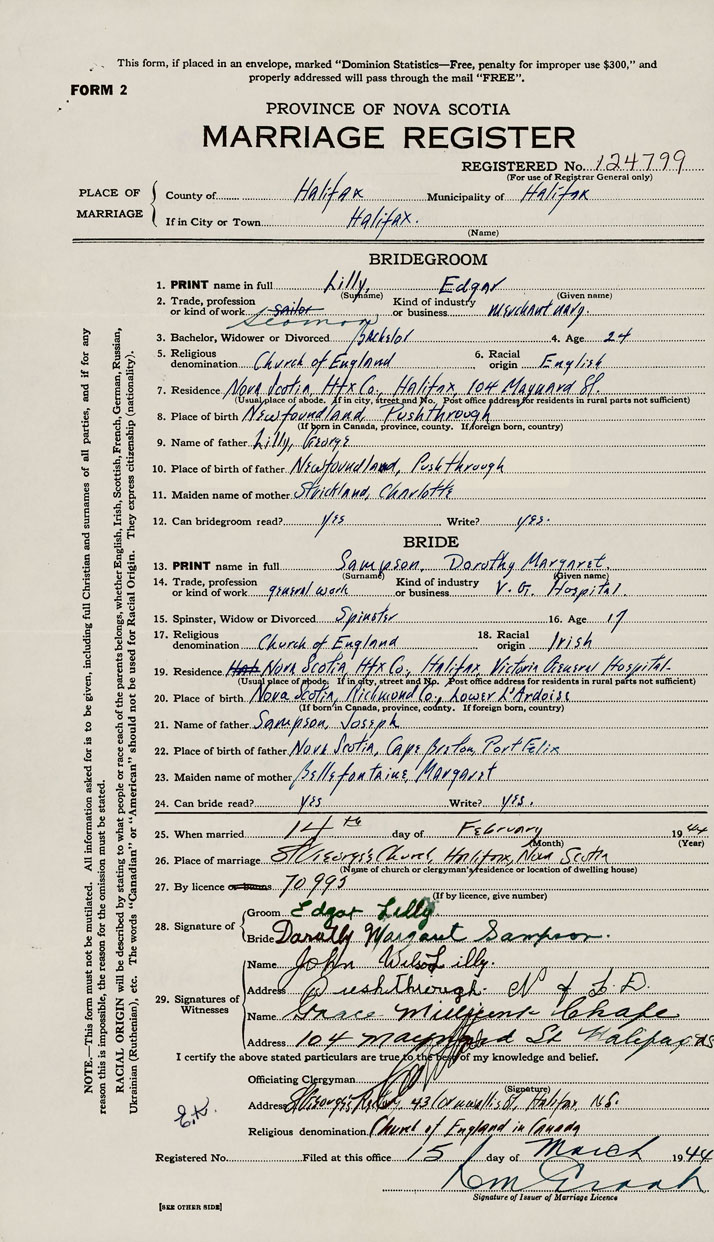 This form, if placed in an envelope, marked “Dominion Statistics—Free, penalty for improper use $300,” and
properly addressed will pass through the mail “FREE”.
FORM 2
PROVINCE OF NOVA SCOTIA
MARRIAGE REGISTER
REGISTERED No. 124799
(For use of Registrar General only)
PLACE OF MARRIAGE
County of Halifax Municipality of Halifax
If in City or Town Halifax.
(Name)
BRIDEGROOM
1. PRINT name in full Lilly, Edgar
(Surname) (Given name)
2. Trade, profession or kind of work sailor seaman Kind of industry or business merchant navy.
3. Bachelor, Widower or Divorced Bachelor 4. Age 24
5. Religious denomination Church of England 6. Racial origin English
7. Residence Nova Scotia, Hfx Co., Halifax, 104 Maynard St.
(Usual place of abode. If in city, street and No. Post office address for residents in rural parts not sufficient)
8. Place of birth Newfoundland, Pushthrough
(If born in Canada, province, county. If foreign born, country)
9. Name of father Lilly, George
10. Place of birth of father Newfoundland, Pushthrough
11. Maiden name of mother Strickland, Charlotte
12. Can bridegroom read? yes Write? yes.
BRIDE
13. PRINT name in full Sampson, Dorothy Margaret.
(Surname) (Given name)
14. Trade, profession or kind of work general work Kind of industry or business V. G. Hospital.
15. Spinster, Widow or Divorced Spinster 16. Age 17
17. Religious denomination Church of England 18. Racial origin Irish
19. Residence Nova Scotia, Hfx Co., Halifax Victoria General Hospital.
(Usual place of abode. If in city, street and No. Post office address for residents in rural parts not sufficient)
20. Place of birth Nova Scotia, Richmond Co., Lower L'Ardoise
(If born in Canada, province, county. If foreign born, country)
21. Name of father Sampson, Joseph
22. Place of birth of father Nova Scotia, Cape Breton, Port Felix
23. Maiden name of mother Bellefontaine, Margaret
24. Can bride read? yes Write? yes.
25. When married 14th day of February 1944
(Month) (Year)
26. Place of marriage St George's Church, Halifax, Nova Scotia
(Name of church or clergyman's residence or location of dwelling house)
27. By licence 70995
(If by licence, give number)
28. Signature of
Groom Edgar Lilly
Bride Dorothy Margaret Sampson.
29. Signatures of Witnesses
Name John Wilso Lilly.
Address Pushthrough. N f L D.
Name Grace Millicent Chafe
Address 104 Maynard St Halifax NS
I certify the above stated particulars are true to the best of my knowledge and belief.
Officiating Clergyman
(Signature)
Address St George's 43 Cornwallis St, Halifax N.S.
Religious denomination Church of England in Canada
Registered No. Filed at this office 15 day of March 1944
Signature of Issuer of Marriage Licence
[SEE OTHER SIDE]
NOTE.—This form must not be mutilated. All information asked for is to be given, including full Christian and surnames of all parties, and if for any
reason this is impossible, the reason for the omission must be stated.
RACIAL ORIGIN will be described by stating to what people or race each of the parents belongs, whether English, Irish, Scottish, French, German, Russian,
Ukrainian (Ruthenian), etc. The words “Canadian” or “American” should not be used for Racial Origin. They express citizenship (nationality).